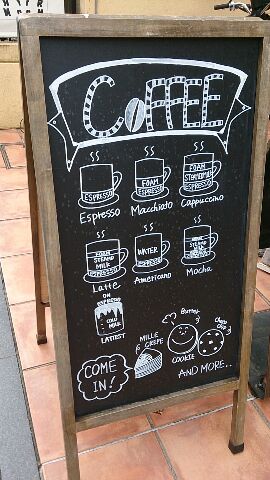 COFFEE
ESPRESSO
Espresso
FOAM
ESPRESSO
Macchiato
FOAM
STEAMED MILK
ESPRESSO
Cappuccino
FOAM
STEAMD
MILK
ESPRESSO
Latte
WATER
ESPRESSO
Americano
STEAMD
MILK
Mocha
ON
ESPRESSO
COLD
MILK
LATTEST
MILLE
CREPE
Butter
COOKIE
Choco
chip
COME
IN!
AND MORE..